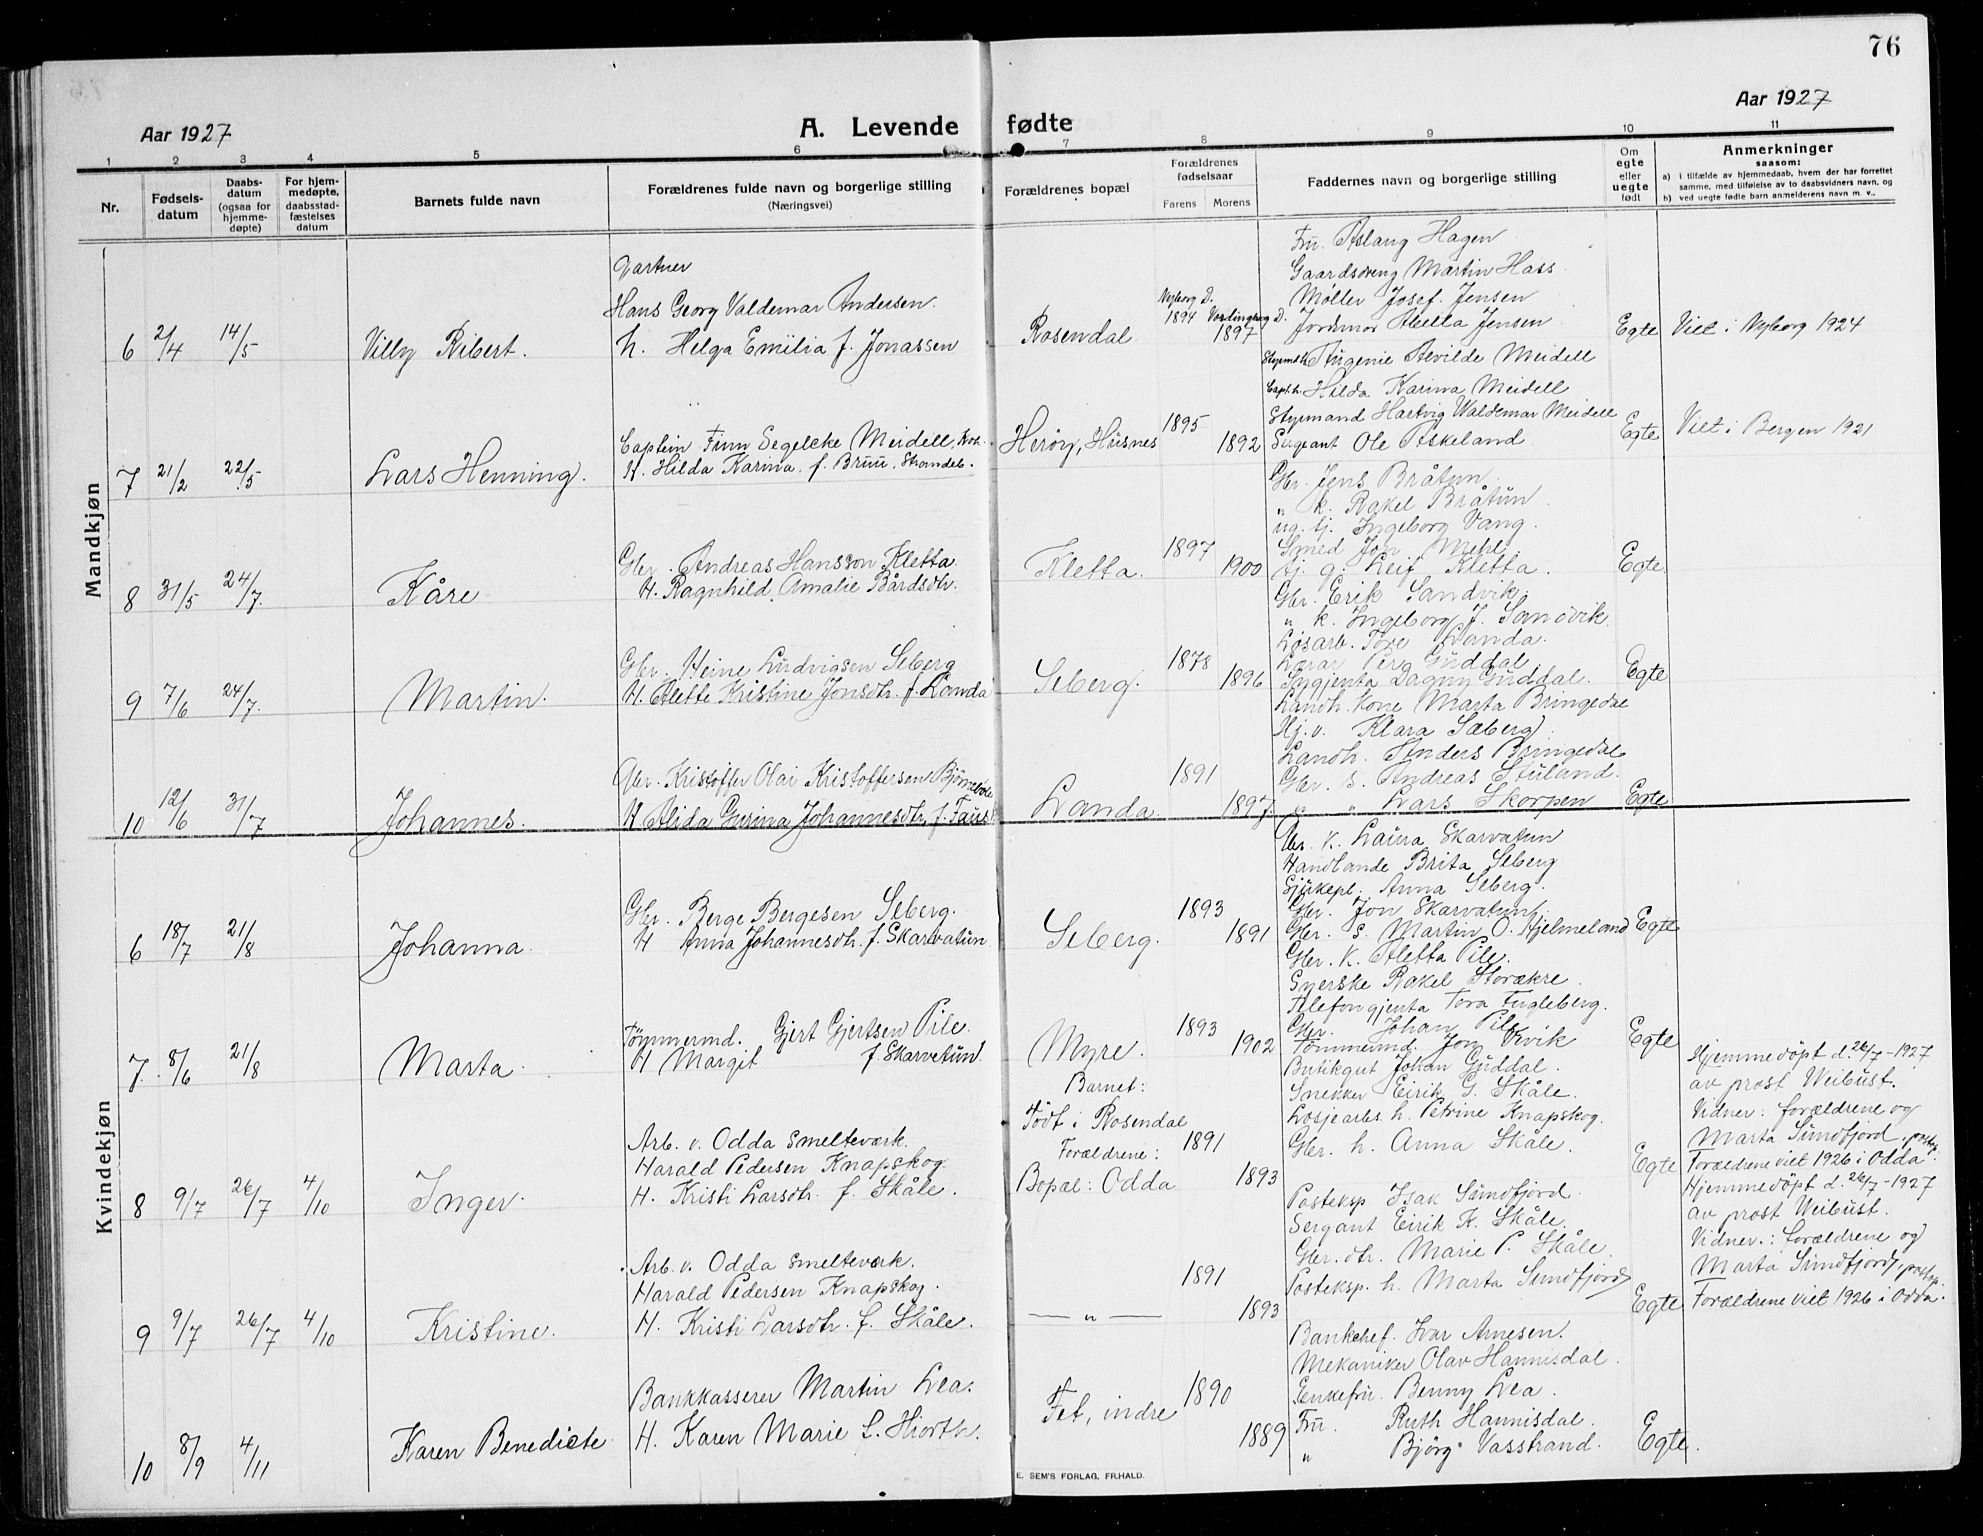 76
Aar 1927
A. Levende fødte
Aar 1927
1 2 3 4 5 6 7 8 9 10 11
Nr.
Fødsels-
datum
Daabs-
datum
(ogsaa for
hjemme-
døpte)
For hjem-
medøpte,
daabsstad-
fæstelses
datum
Barnets fulde navn
Forældrenes fulde navn og borgerlige stilling
(Næringsvei)
Forældrenes bopæl
Forældrenes
fødselsaar
Farens Morens
Faddernes navn og borgerlige stilling
Om
egte
eller
uegte
født
Anmerkninger
saasom:
a) i tilfælde av hjemmedaab, hvem der har forrettet
samme, med tilføielse av to daabsvidners navn, og
b) ved uegte fødte barn anmelderens navn m. v.,
Mandkjøn
6 2/4 14/5 Villy Ribert.
Gartner
Hans Georg Valdemar Andersen.
h. Helga Emilia f. Jonassen
Rosendal
Nyborg D.
1894
Vordingborg D.
1897
Fru. Aslaug Hagen
Gaardsdreng Martin Hass
Møller Josef Jensen
Jordmor Abella Jensen
Egte
Viet i Nyborg 1924
7 21/2 22/5 Lars Henning.
Captein Finn Segelcke Meidell,
H. Hilda Karina f. Bruu,
Herøy, Husnes
1895
1892
Eugenie Alvilde Meidell
Capt. h. Hilda Karina Meidell
Styrmand Hartvig Waldemar Meidell
Sergeant Ole Askeland
Egte
Viet i Bergen 1921
8 31/5 24/7. Kåre
Gbr. Andreas Hansson Kletta.
H. Ragnhild Amalie Bårdsdtr.
Kletta.
1897
1900
Gbr. Jens Bråtun
" k. Rakel Bråtun
ug. tj. Ingeborg Vang.
Smed Jon Mehl
tj. g. Leif Kletta.
Egte.
9 7/6 24/7. Martin.
Gbr. Heine Ludvigsen Seberg
H. Alette Kristine Jonsdtr. f. Landa
Seberg.
1878
1896
Gbr. Erik Sandvik.
" k. Ingeborg J. Sandvik.
Løsarb. Tore Landa.
Lærar Per Guddal
Sygjenta Dagny Guddal.
Egte
10 12/6 31/7 Johannes.
Gbr. Kristoffer Olai Kristoffersen Bjørnebole
H Alida Gurina Johannesdtr. f. Faus
Landa.
1891
1897.
Landh. kone Marta Bringedal
Hj. v. Klara Sæberg
Landh. Anders Bringedal
Gbr. s. Andreas Stuland.
" " Lars Skorpen
Egte
Kvindekjøn
6 18/7 21/8 Johanna.
Gbr. Berge Bergesen Seberg.
H Anna Johannesdtr. f. Skarvatun
Seberg.
1893
1891
Gbr. k. Laura Skarvatun
Handlande Brita Seberg
Sjukepl. Anna Seberg.
Gbr. Jon Skarvatun
Gbr. s. Martin O. Hjelmeland
Egte
7. 8/6 21/8 Marta.
Tømmermd. Gjert Gjertsen Pile.
H Margit f. Skarvetun.
Myre.
1893
1902
Gbr. k. Aletta Pile.
Syerske Rakel Storækre.
Telefongjenta Tora Fugleberg.
Gbr. Johan Pile
Tømmermd. Jon Vvik
Egte
8 9/7 26/7 4/10 Inger.
Arb. v. Odda smelteværk.
Harald Pedersen Knapskog.
H. Kristi Larsdtr. f. Skåle.
Barnet:
Født i Rosendal
Forældrene:
Bopæl: Odda
1891
1893
Butikgut Johan Guddal.
Snekker Eirik G. Skåle.
Losjearb. h. Petrine Knapskog.
Gbr. h. Anna Skåle.
Egte
Hjemmedøpt d. 26/7-1927
av prost Weibust.
Vidner: forældrene og
Marta Sundfjord, posteksp.
Forældrene viet 1926 i Odda.
9 9/7 26/7 4/10 Kristine.
Arb. v. Odda smelteverk.
Harald Pedersen Knapskog.
H. Kristi Larsdtr. f. Skåle.
— " —
1891
1893
Posteksp Isak Sundfjord.
Sergant Eirik K. Skåle.
Gbr. dtr. Marie P. Skåle.
Posteksp. h. Marta Sundfjord
Egte
Hjemmedøpt d. 26/7-1927
av prost Weibust.
Vidner.: forældrene og
Marta Sundfjord, posteksp.
Forældrene viet 1926 i Odda.
10 8/9 4/11 Karen Benedicte
Bankkasserer Martin Lea.
H. Karen Marie f. Hiorth.
Fet, indre
1890
1889
Bankchef. Ivar Arnesen.
Mekaniker Olav Hannisdal.
Enkefru. Benny Lea.
Fru. Ruth Hannisdal.
" Bjørg Vasstrand.
Egte.
E. SEM'S FORLAG, FR.HALD.